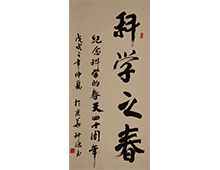 科学之春
纪念科学的春天四十周年
戊戌之年仲夏
于
书